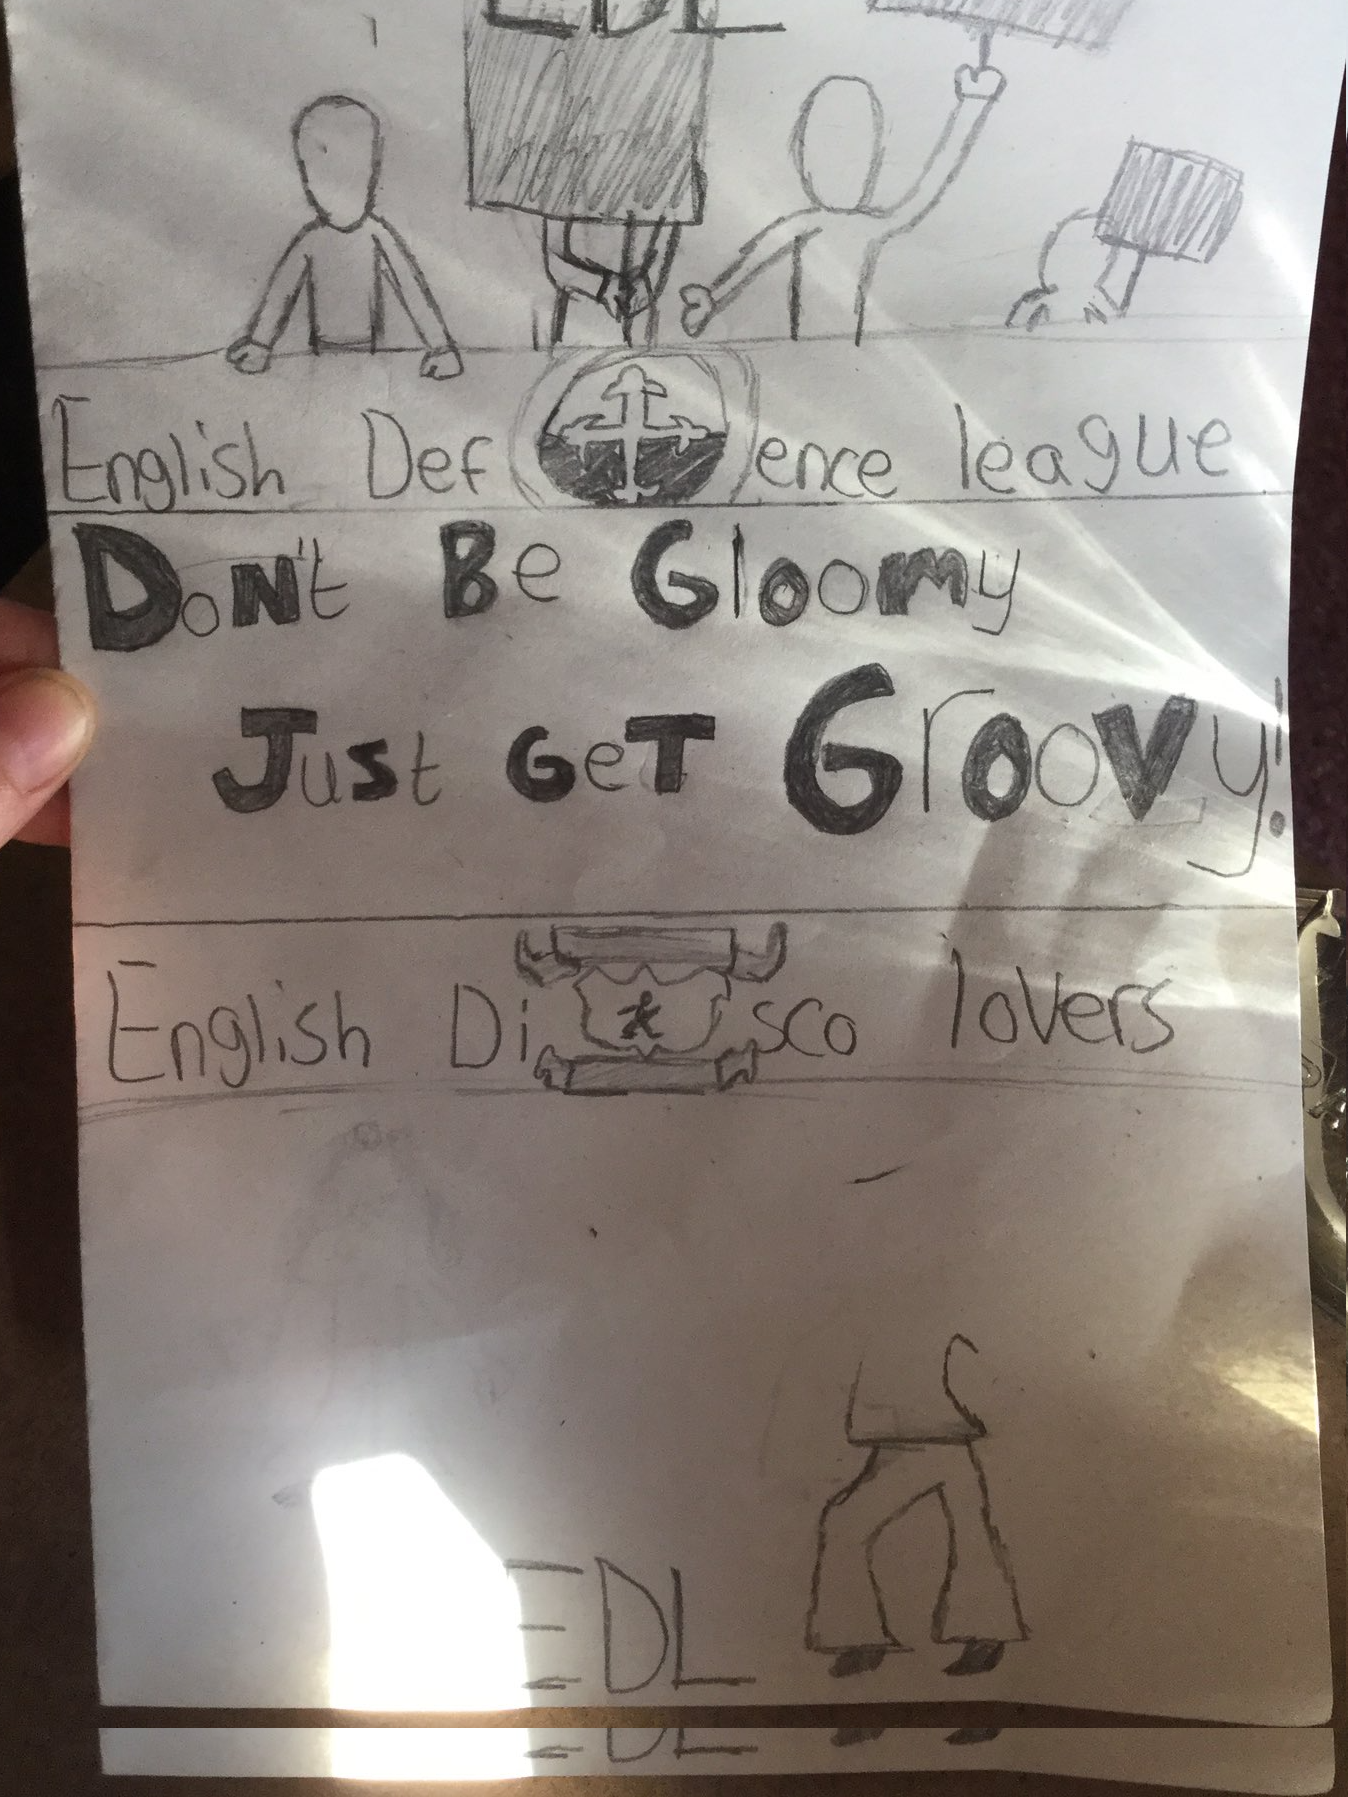 EDL
English Defence league
Don't Be Gloomy
Just GeT Groovy!
English Disco lovers
EDL